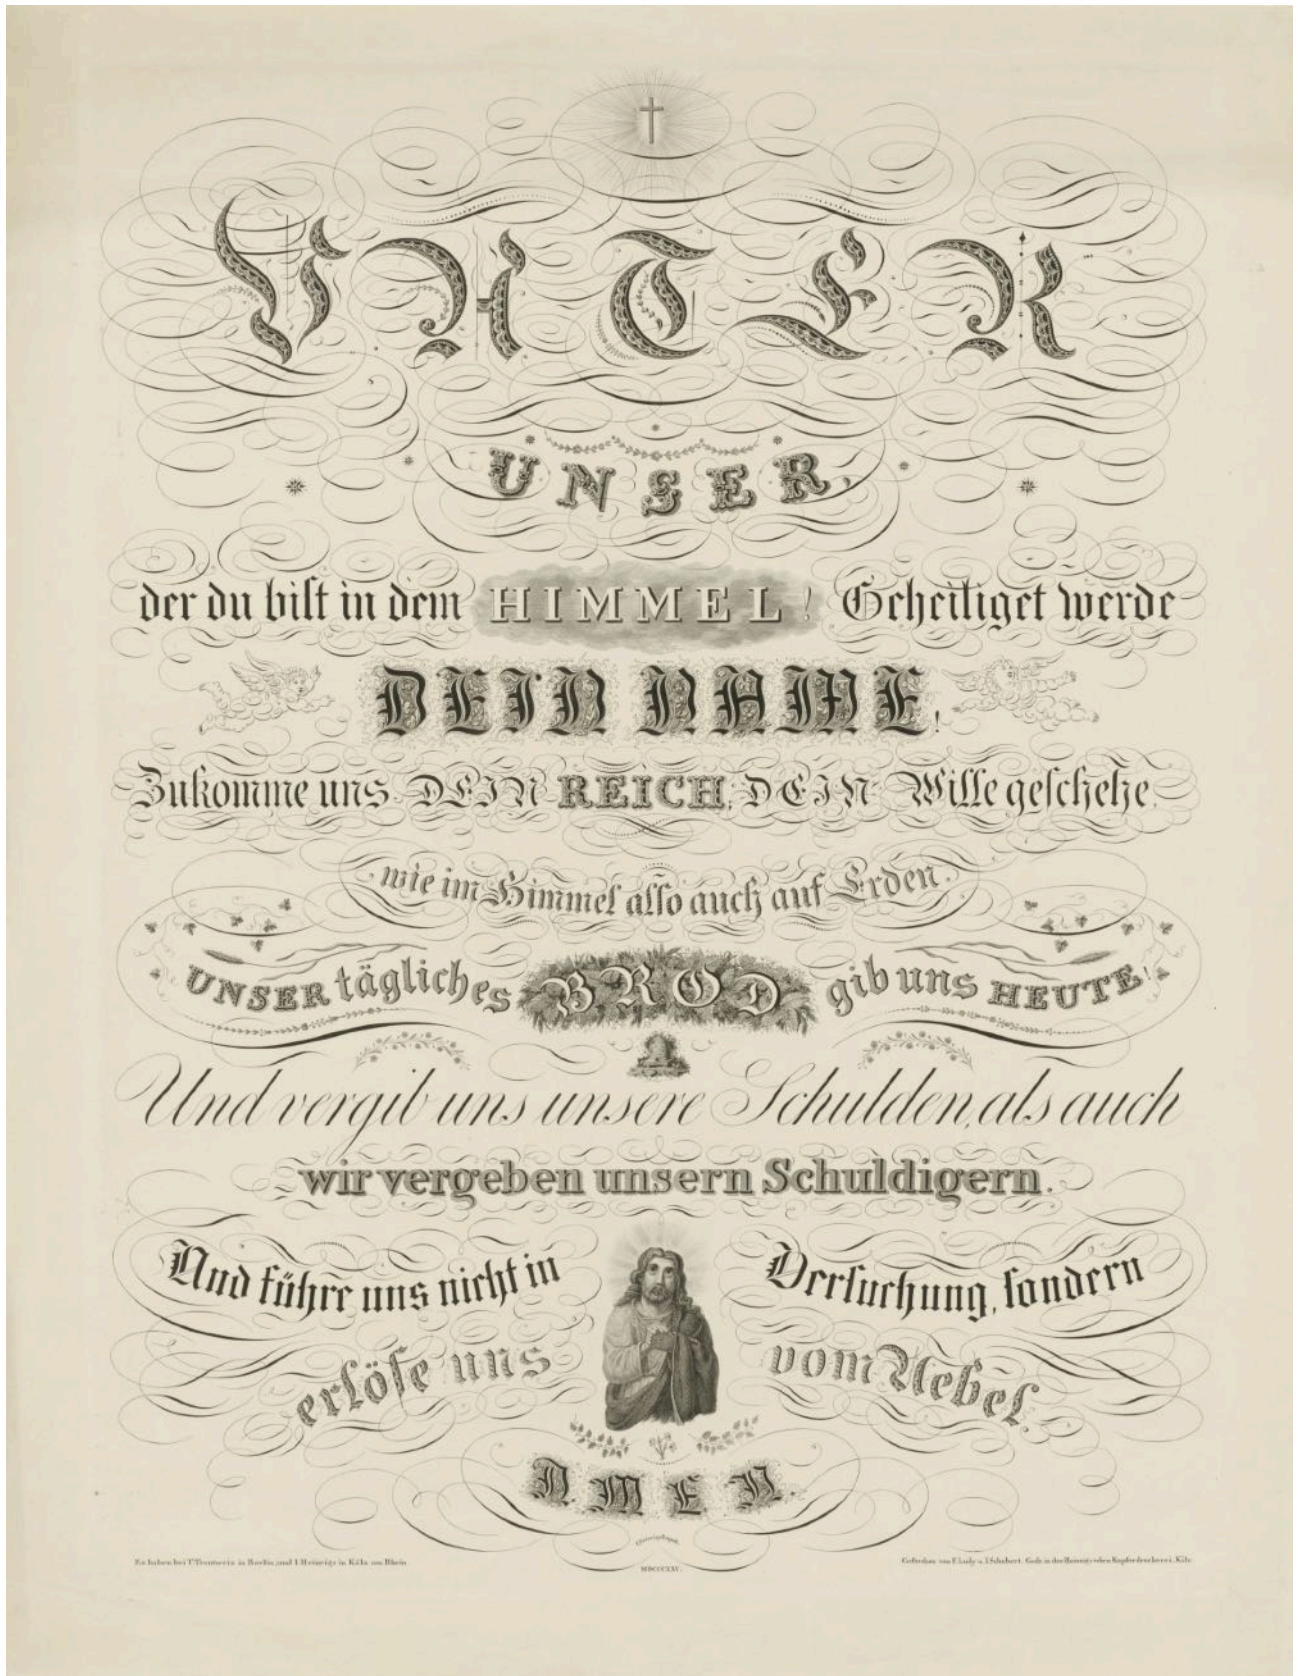 VATER
UNSER,
der du bist in dem HIMMEL! Geheiliget werde
DEIN NAME!
Zukomme uns DEIN REICH, DEIN Wille geschehe,
wie im Himmel also auch auf Erden.
UNSER tägliches BROD gib uns HEUTE!
Und vergib uns unsere Schulden, als auch
wir vergeben unsern Schuldigern.
Und führe uns nicht in Versuchung, sondern
erlöse uns vom Uebel.
AMEN.
Zu haben bei T. Trautwein in Berlin, und I. Heinrigs in Köln am Rhein
MDCCCXXV.
Gestochen von u. I. Schubert. Gedr. in der Kupferdruckerei. Köln